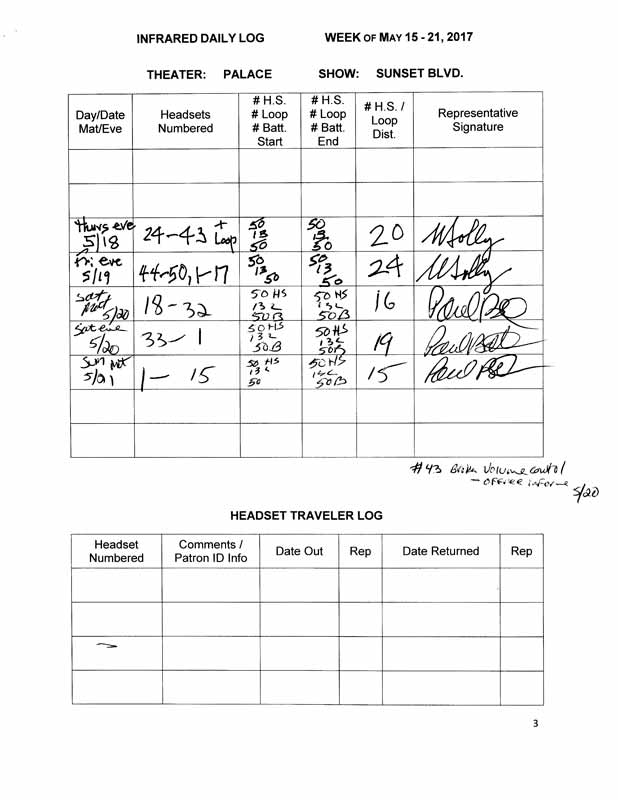 INFRARED DAILY LOG WEEK OF MAY 15 - 21, 2017
THEATER: PALACE SHOW: SUNSET BLVD.
Day/Date Mat/Eve Headsets Numbered # H.S. # Loop # Batt. Start # H.S. # Loop # Batt. End # H.S. / Loop Dist. Representative Signature
Thurs eve 5/18 24-43 + Loop 50 13 50 50 13 50 20
Fri eve 5/19 44-50, 1-17 50 13 50 50 13 50 24
Sat Mat 5/20 18-32 50 HS 13 L 50 B 50 HS 13 L 50 B 16 Paul
Sat eve 5/20 33-1 50 HS 13 L 50 B 50 HS 13 L 50 B 19 Paul
Sun Mt 5/21 1-15 50 HS 13 L 50 50 HS 13 L 50 B 15 Paul
#43 Broken Volume control
- office informe 5/20
HEADSET TRAVELER LOG
Headset Numbered Comments / Patron ID Info Date Out Rep Date Returned Rep
3